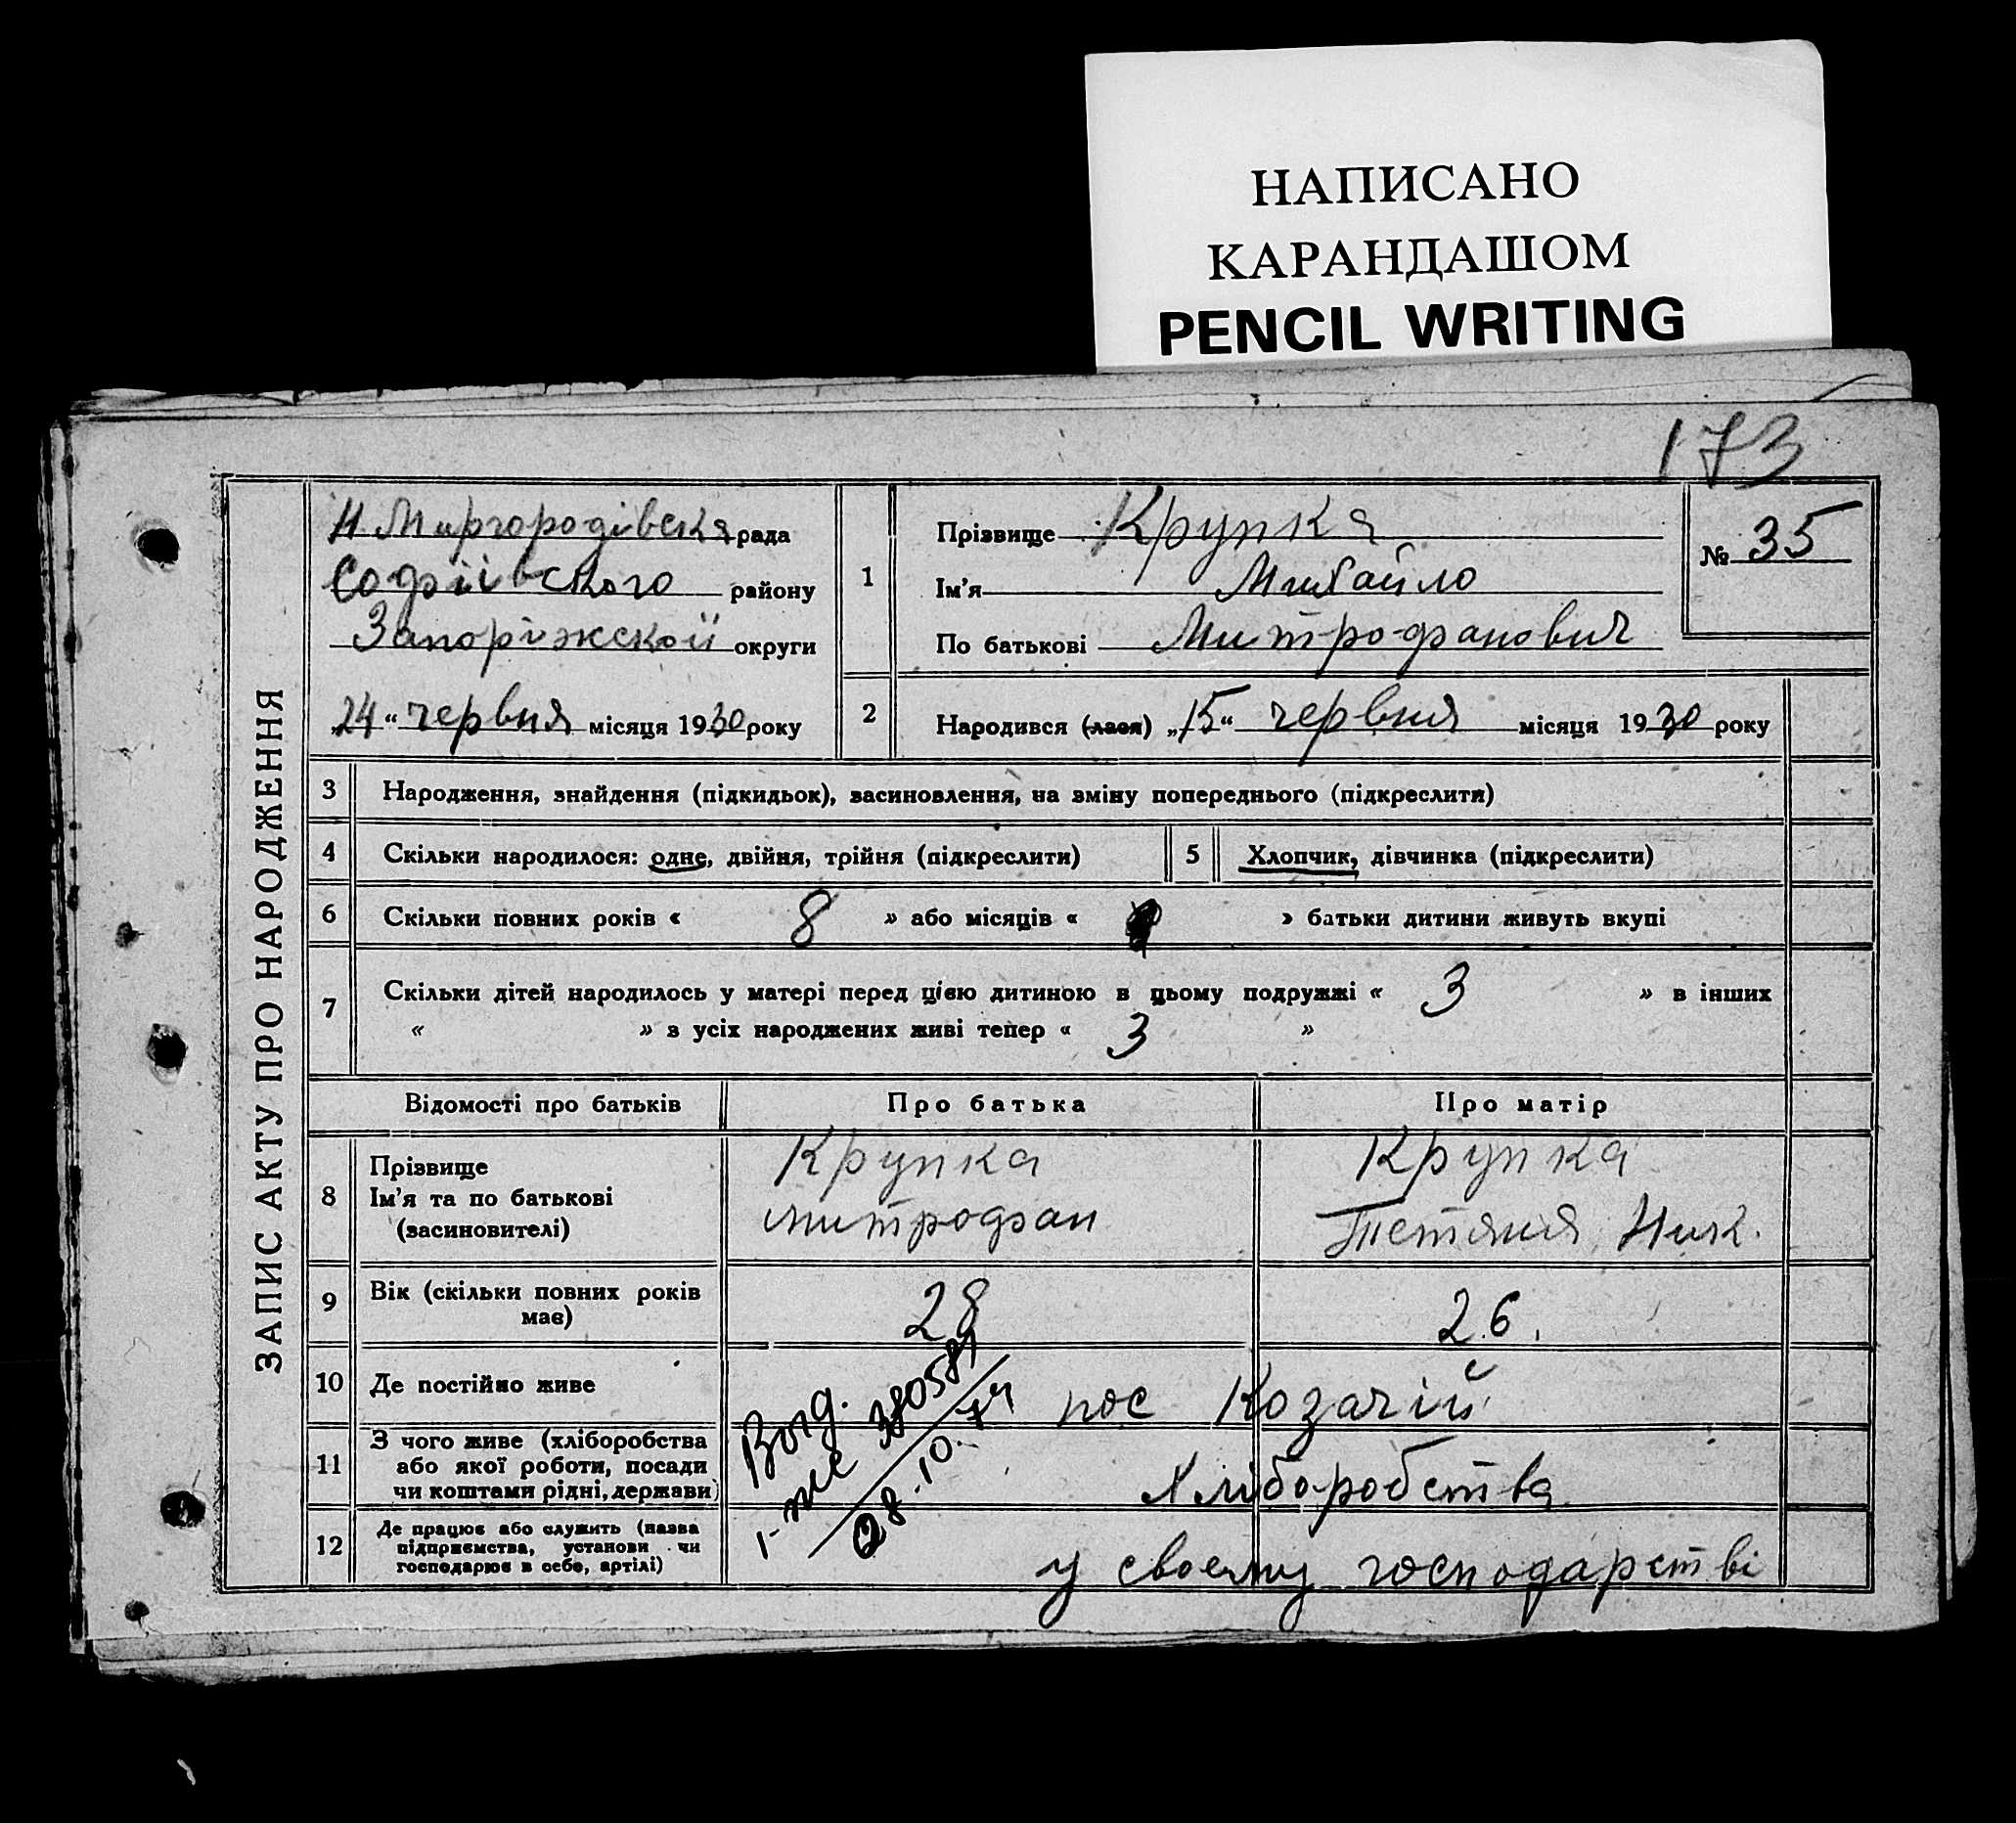 НАПИСАНО
КАРАНДАШОМ
PENCIL WRITING
173
ЗАПИС АКТУ ПРО НАРОДЖЕННЯ
Н. Миргородівська рада
Софіївського району
Запоріжской округи
„24“ червня місяця 1930 року
1
Прізвище Крупка
Ім'я Михайло
По батькові Митрофанович
№ 35
2 Народився (лася) „15“ червня місяця 1930 року
3 Народження, знайдення (підкидьок), засиновлення, на зміну попереднього (підкреслити)
4 Скільки народилося: одне, двійня, трійня (підкреслити) 5 Хлопчик, дівчинка (підкреслити)
6 Скільки повних років « 8 » або місяців « » батьки дитини живуть вкупі
7 Скільки дітей народилось у матері перед цією дитиною в цьому подружжі « 3 » в інших
« » з усіх народжених живі тепер « 3 »
Відомості про батьків Про батька Про матір
8 Прізвище
Ім'я та по батькові
(засиновителі)
Крупка
митрофан
Крупка
Тетяна Ник.
9 Вік (скільки повних років
має)
28
26.
10 Де постійно живе
пос Козачій
11 З чого живе (хліборобства
або якої роботи, посади
чи коштами рідні, держави)
Хліборобства
12 Де працює або служить (назва
підприємства, установи чи
господарює в себе, артілі)
у своему господарстві
28-10.